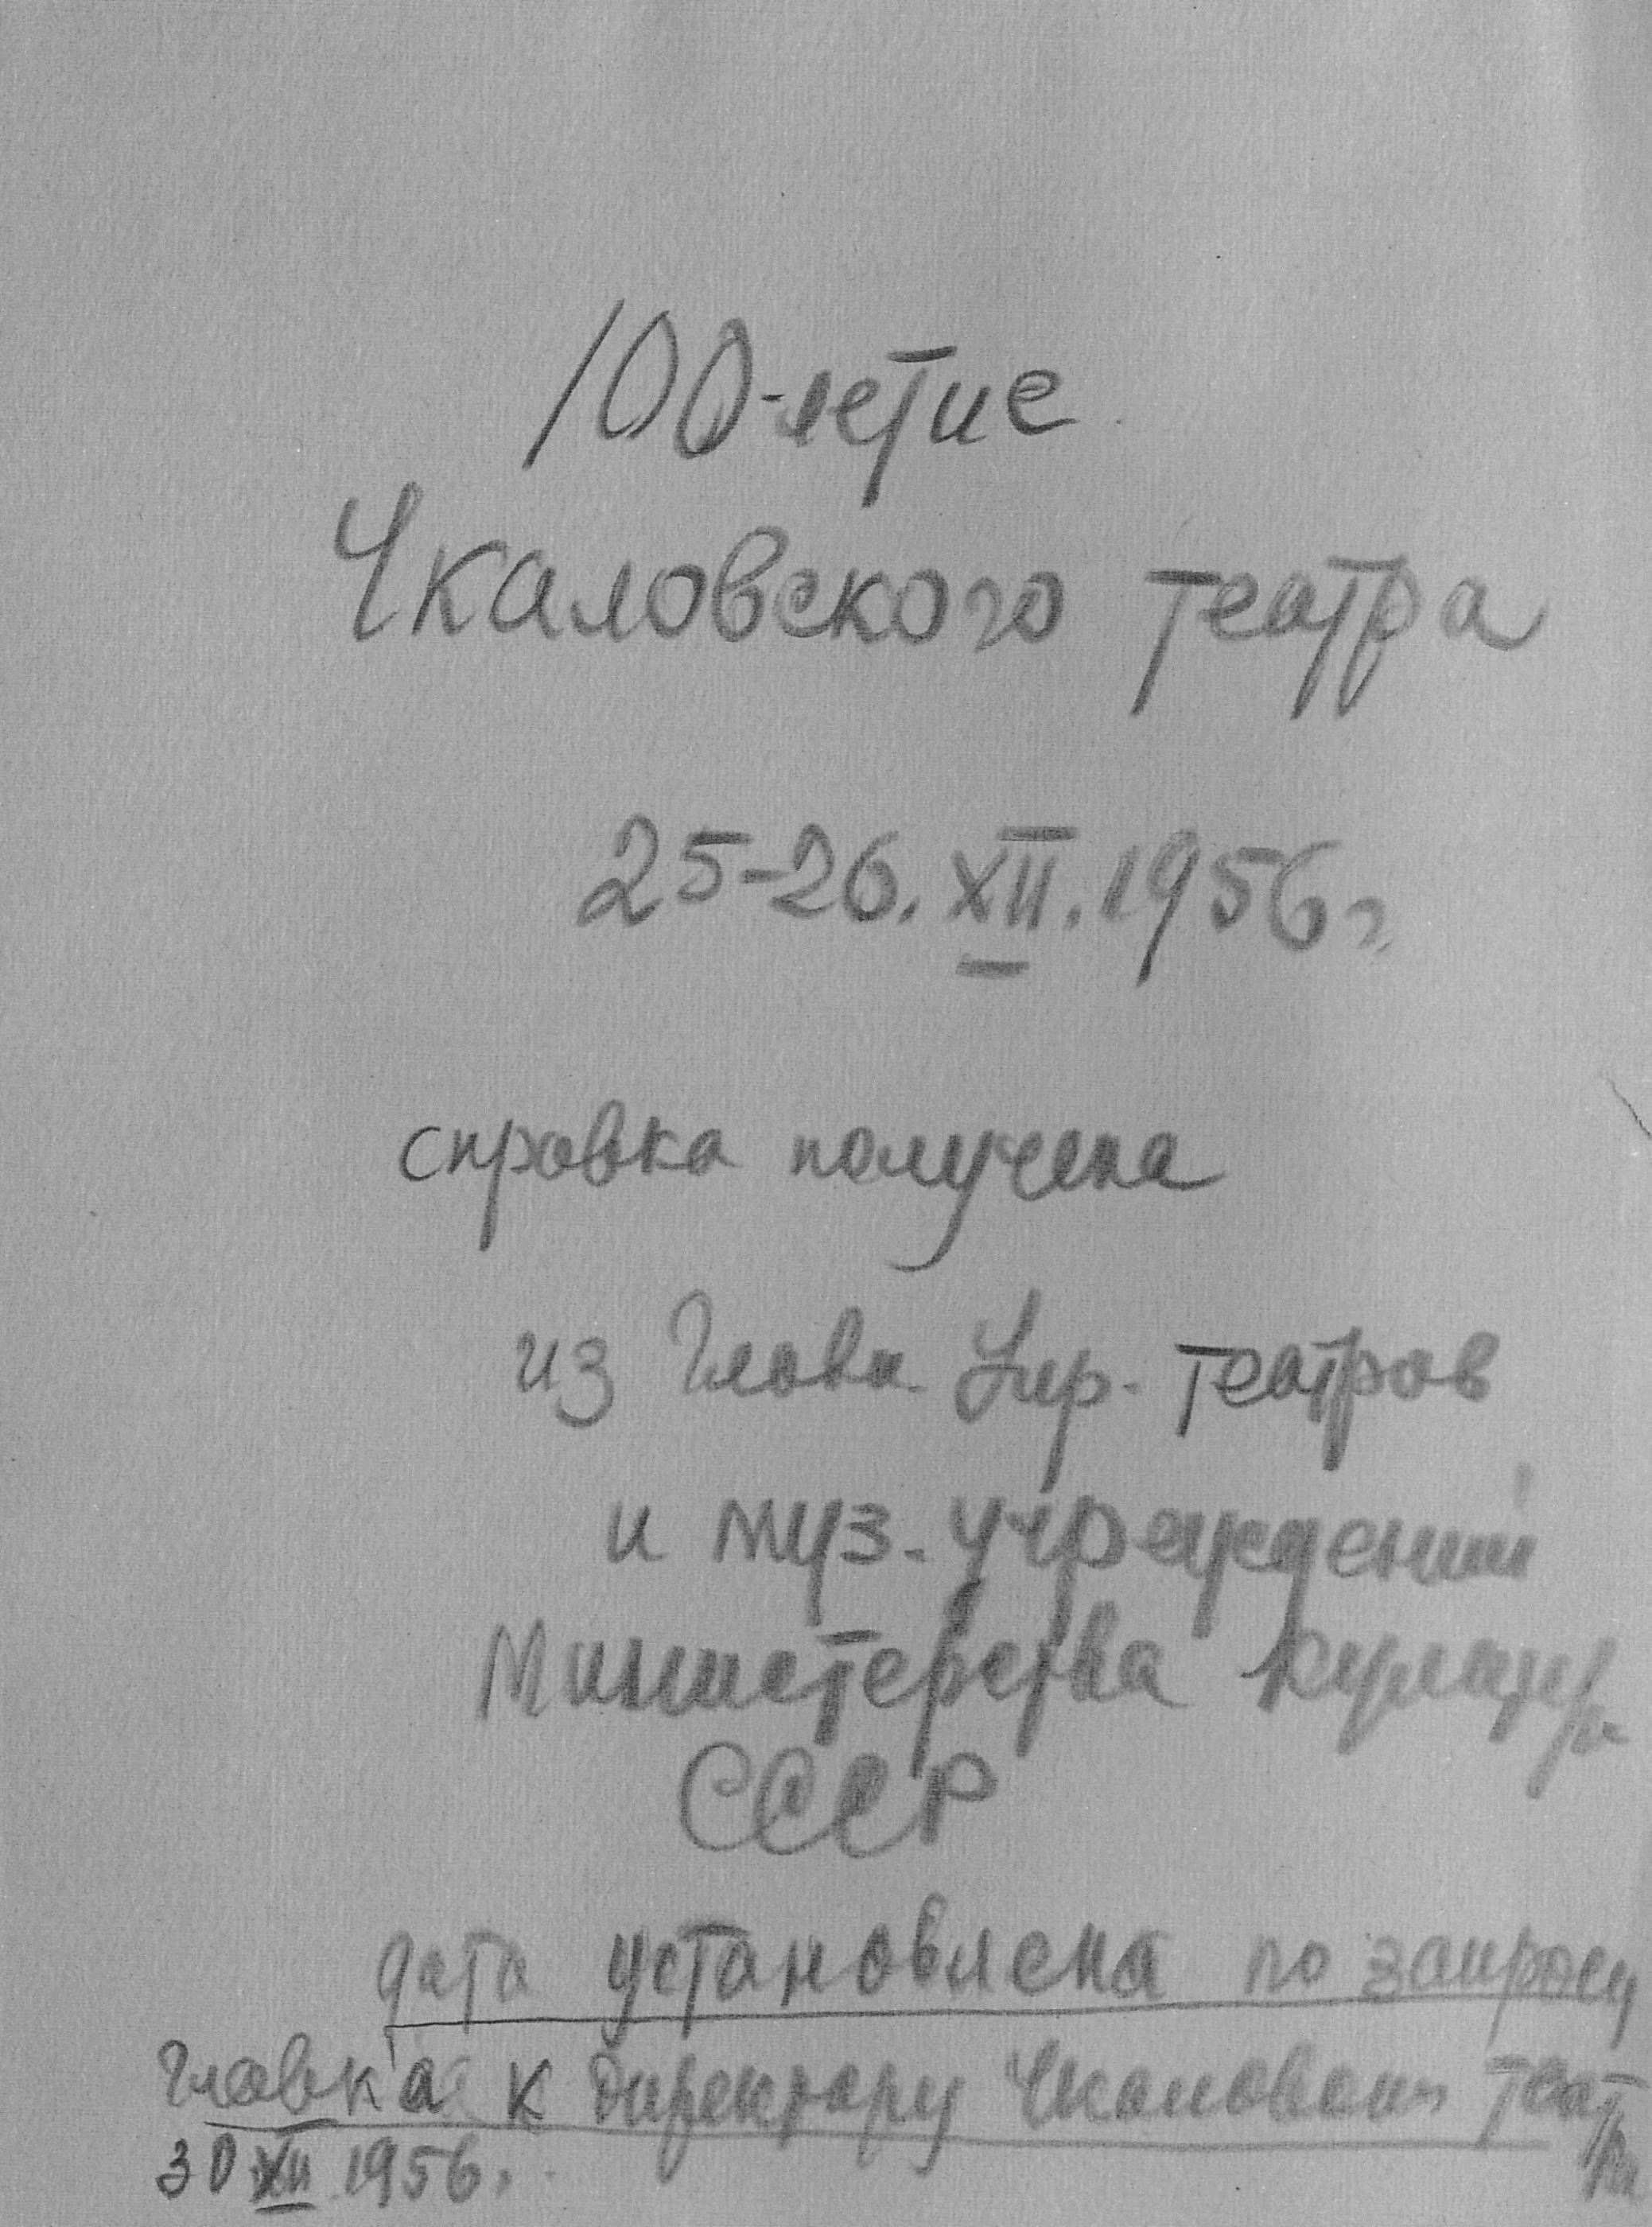 100-летие
Чкаловского театра
25-26. XII. 1956 г.
справка получена
из Главн. Упр. театров
и муз. учреждений
Министерства Культуры
СССР
дата установлена по запросу
Главка к Директору Чкаловского театра
30 XII 1956.